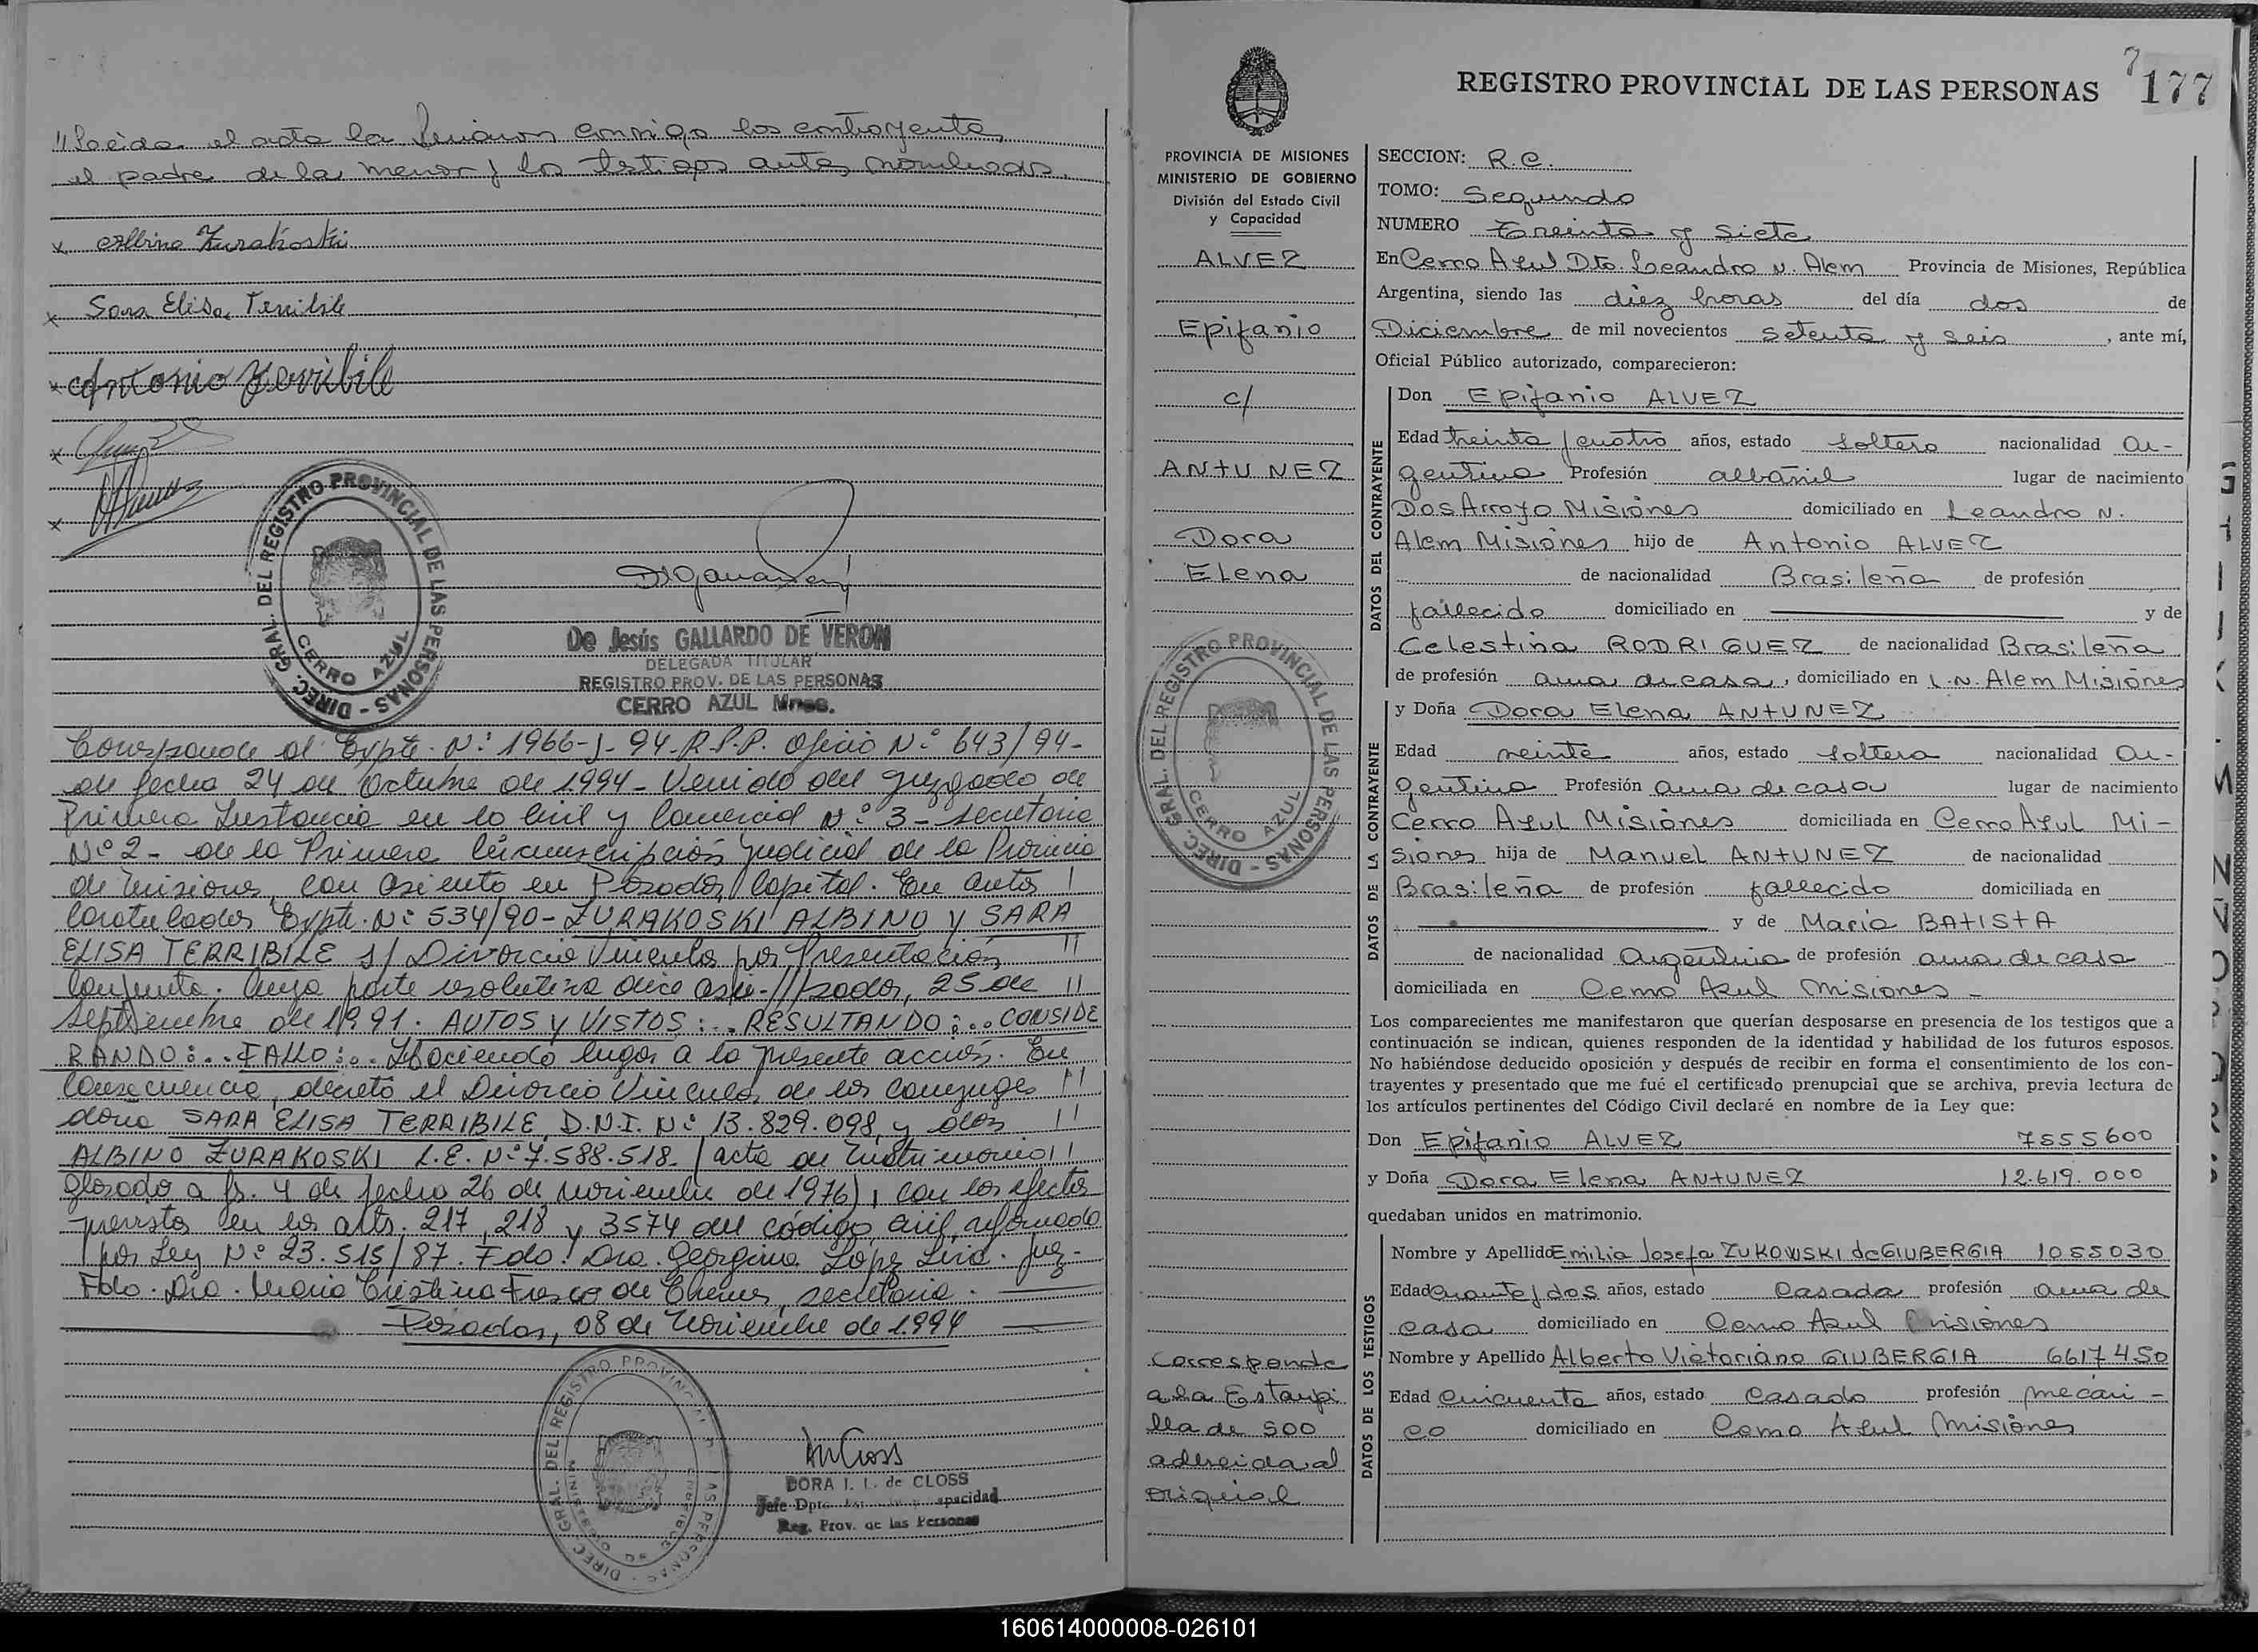 "Leida el acta la firmaron conmigo los contrayentes,
el padre de la menor y los testigos antes nombrados.
x Albino Zurakoski
x Sara Elisa Terribile
x Antonio Terribile
x
x
DIREC. GRAL. DEL REGISTRO PROVINCIAL DE LAS PERSONAS -
CERRO AZUL
De Jesús GALLARDO DE VERON
DELEGADA TITULAR
REGISTRO PROV. DE LAS PERSONAS
CERRO AZUL Mnes.
Corresponde al Expte. Nº 1966-J-94-R.P.P. Oficio Nº 643/94-
de fecha 24 de Octubre de 1994- Venido del Juzgado de
Primera Instancia en lo Civil y Comercial Nº 3- Secretaria
Nº 2- de la Primera Circunscripción Judicial de la Provincia
de Misiones, con asiento en Posadas, Capital. En autos
Caratulados Expte. Nº 534/90- ZURAKOSKI ALBINO y SARA
ELISA TERRIBILE s/ Divorcio Vincular por Presentación
Conjunta. Cuya parte resolutiva dice asi:- //sadas, 25 de
Septiembre de 1991. AUTOS y VISTOS:.. RESULTANDO:.. CONSIDE
RANDO:.. FALLO:.. Haciendo lugar a la presente acción. En
Consecuencia, decreto el Divorcio Vincular de los conyuges
doña SARA ELISA TERRIBILE, D.N.I. Nº 13.829.098, y don
ALBINO ZURAKOSKI L.E. Nº 7.588.518- (acta de matrimonio
glosado a fs. 4 de fecha 26 de noviembre de 1976), con los efectos
previstos en los arts. 217, 218 y 3574 del código civil, reformado
por Ley Nº 23.515/87. Fdo: Dra. Georgina López Liva. Juez-
Fdo. Dra. Maria Cristina Fresco de Chemes, secretaria.
Posadas, 08 de Noviembre de 1994
DORA I. L. de CLOSS
Jefe Dpto. Capacidad
Reg. Prov. de las Personas
7
177
REGISTRO PROVINCIAL DE LAS PERSONAS
PROVINCIA DE MISIONES
MINISTERIO DE GOBIERNO
División del Estado Civil
y Capacidad
ALVEZ
Epifanio
c/
ANTUNEZ
Dora
Elena
DIREC. GRAL. DEL REGISTRO PROVINCIAL DE LAS PERSONAS -
CERRO AZUL
Corresponde
a la Estampi
lla de 500
adherida al
original
SECCION: R.C.
TOMO: Segundo
NUMERO Treinta y Siete
En Cerro Azul Dto. Leandro N. Alem Provincia de Misiones, República
Argentina, siendo las diez horas del día dos de
Diciembre de mil novecientos setenta y seis, ante mí,
Oficial Público autorizado, comparecieron:
DATOS DEL CONTRAYENTE
Don Epifanio ALVEZ
Edad treinta y cuatro años, estado soltero nacionalidad Ar-
gentina Profesión albañil lugar de nacimiento
Dos Arroyo Misiones domiciliado en Leandro N.
Alem Misiones hijo de Antonio ALVEZ
de nacionalidad Brasileña de profesión
fallecido domiciliado en y de
Celestina RODRIGUEZ de nacionalidad Brasileña
de profesión ama de casa, domiciliado en L.N. Alem Misiones
DATOS DE LA CONTRAYENTE
y Doña Dora Elena ANTUNEZ
Edad veinte años, estado soltera nacionalidad Ar-
gentina Profesión ama de casa lugar de nacimiento
Cerro Azul Misiones domiciliada en Cerro Azul Mi-
siones hija de Manuel ANTUNEZ de nacionalidad
Brasileña de profesión fallecido domiciliada en
y de Maria BATISTA
de nacionalidad Argentina de profesión ama de casa
domiciliada en Cerro Azul Misiones -
Los comparecientes me manifestaron que querían desposarse en presencia de los testigos que a
continuación se indican, quienes responden de la identidad y habilidad de los futuros esposos.
No habiéndose deducido oposición y después de recibir en forma el consentimiento de los con-
trayentes y presentado que me fué el certificado prenupcial que se archiva, previa lectura de
los artículos pertinentes del Código Civil declaré en nombre de la Ley que:
Don Epifanio ALVEZ 7555600
y Doña Dora Elena ANTUNEZ 12.619.000
quedaban unidos en matrimonio.
DATOS DE LOS TESTIGOS
Nombre y Apellido Emilia Josefa ZUKOWSKI de GIUBERGIA 1055030
Edad cuarenta y dos años, estado Casada profesión ama de
casa domiciliado en Cerro Azul Misiones
Nombre y Apellido Alberto Victoriano GIUBERGIA 6617450
Edad cincuenta años, estado casado profesión mecáni-
co domiciliado en Cerro Azul Misiones
160614000008-026101